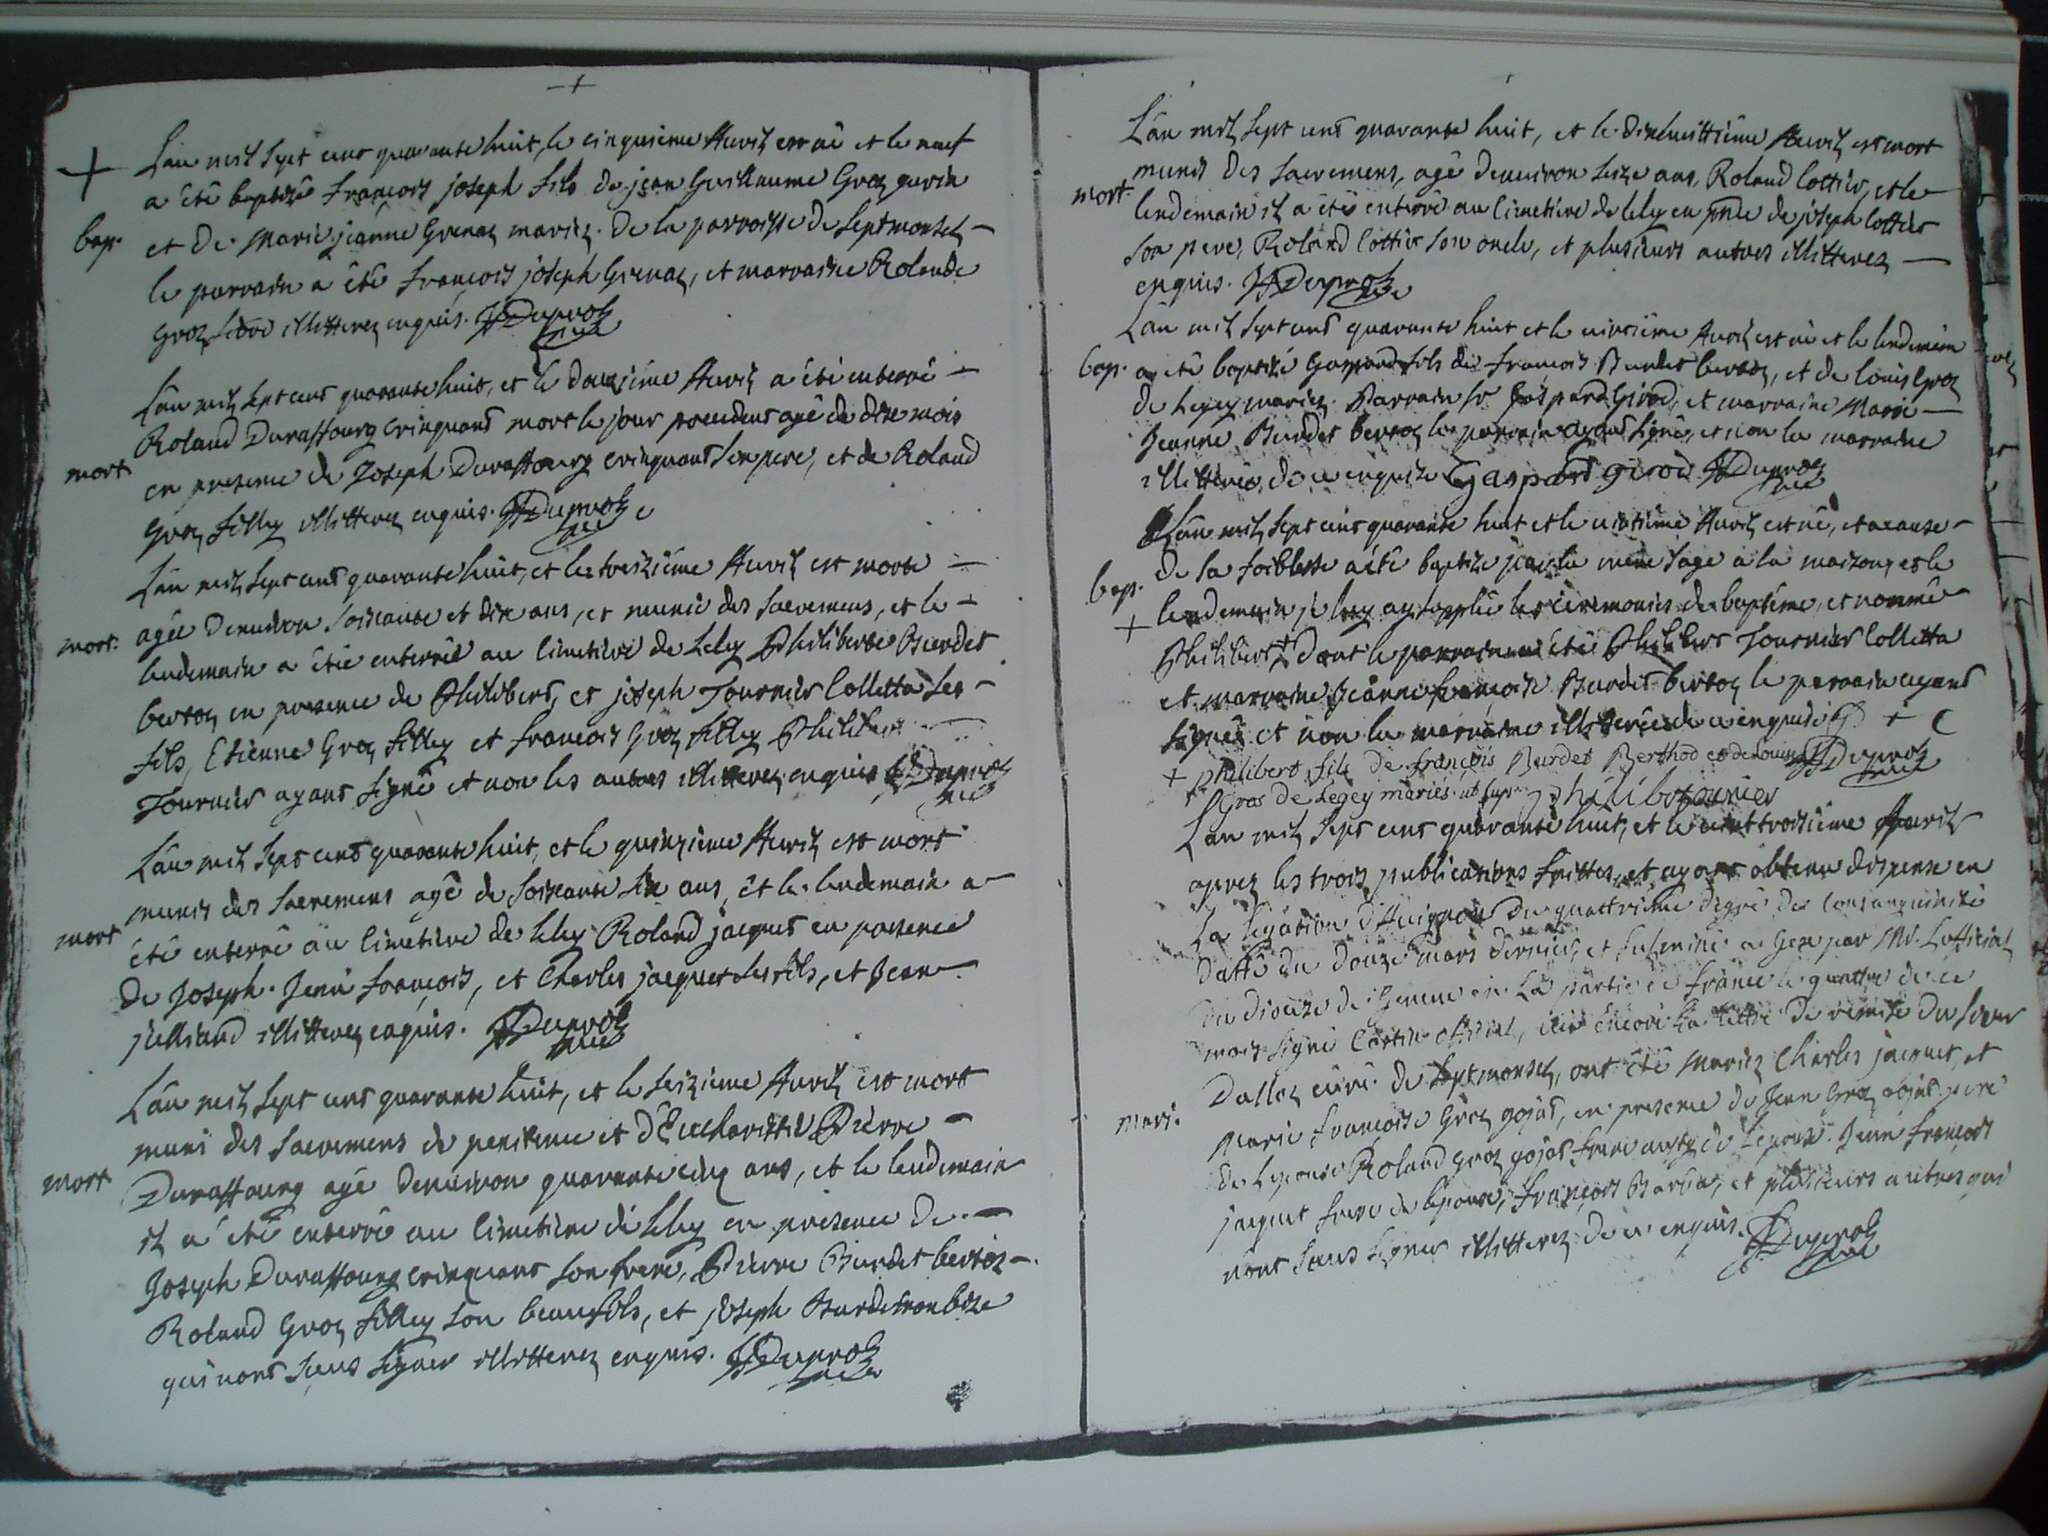 L'an mil sept cent quarante huit, le cinquieme Avril est né et le neuf
a été baptizé François joseph fils de jean Guillaume Groz gurin
et de Marie jeanne Grenaz mariez de la parroisse de Septmonsel
bap.
le parrain a été françois joseph Grenaz, et marraine Rolande
Groz illitterez enquis. Duproz
L'an mil sept cent quarante huit, et le douzieme Avril a été enterré
Roland Duraffourg Crinquand mort le jour precedent agé de dix mois
mort
en presence de Joseph Duraffourg crinquand son pere, et de Roland
Groz filley illitterez enquis. Duproz
L'an mil sept cent quarante huit, et le treizième Avril est morte
agée d'environ soixante et dix ans, et munie des sacremens, et le
mort.
lendemain a été enterrée au cimetiere de Lelex Philiberte Burdet
bertoz en presence de Philibert, et joseph Tournier Colletta ses
fils, Etienne Groz filley et françois Groz filley Philibert
Tournier ayant signé et non les autres illitterez enquis Duproz
L'an mil sept cent quarante huit, et le quinzieme Avril est mort
munis des sacremens agé de soixante six ans, et le lendemain a
mort
été enterré au cimetiere de lelex Roland jacquet en presence
de Joseph. Jean françois, et Charles jacquet ses fils, et Jean
julliand illitterez enquis. Duproz
L'an mil sept cent quarante huit, et le seizieme Avril est mort
muni des sacremens de penitence et d'Eucharistie Pierre
mort
Duraffourg agé d'environ quarante cinq ans, et le lendemain
il a été enterré au cimetiere de lelex en presence de
Joseph Duraffourg crinquand son frere, Pierre Burdet bertoz
Roland Groz filley son beaufils, et joseph
qui n'ont sceus signer illitterez enquis. Duproz
L'an mil sept cent quarante huit, et le dixhuittième Avril est mort
munis des sacremens, agé d'environ seize ans, Roland Cottier, et le
mort.
lendemain il a été enterré au cimetiere de lelex en pnce de joseph cottier
son pere, Roland Cottier son oncle, et plusieurs autres illitterez
enquis. Duproz
L'an mil sept cent quarante huit et le vintième Avril est né et le lendemain
bap.
a été baptizé Gaspard fils de françois Burdet bertoz, et de louise Groz
de Legex mariez. Parrain sr Gaspard Girod, et marraine Marie
Jeanne Burdet bertoz le parrain ayant signé, et non la marraine
illitterée de ce enquise Gaspard girod Duproz
L'an mil sept cent quarante huit et le vintième Avril est né, et a cause
de sa foiblesse a été baptizé par la mere sage a la maizon, et le
bap.
lendemain je luy ay applié les ceremonies du baptéme, et nommé
Philibert + dont le parrain a été Philibert Tournier Colletta
et marraine Jeanne françoise Burdet bertoz le parrain ayant
signé et non la marraine illitterée de ce enquise
+ philibert fils de françois Burdet Berthod et de Louise Duproz
Gros de Legey mariés ut supra philibertournier
L'an mil sept cent quarante huit, et le vint troisième Avril
aprez les trois publications faittes, et ayant obtenu dispense en
La legation d'Avignon du quattrieme degré de consanguinité
datté du douze mars dernier, et fulminé a Gex par Mr. L'official
du dioceze de Geneve en la partie de france le quattre de ce
mois signé Castin official, veu encore la lettre de remise du sieur
Dalloz curé de septmonsel, ont été mariez Charles jacquet, et
mari.
Marie françoise Groz gojat, en presence de Jean Groz gojat pere
de l'epouse Roland Groz gojat frere aussy de l'epouse. Jean françois
jacquet frere de l'epoux, françois Barbier, et plusieurs autres qui
n'ont sceus signer illitterez de ce enquis. Duproz